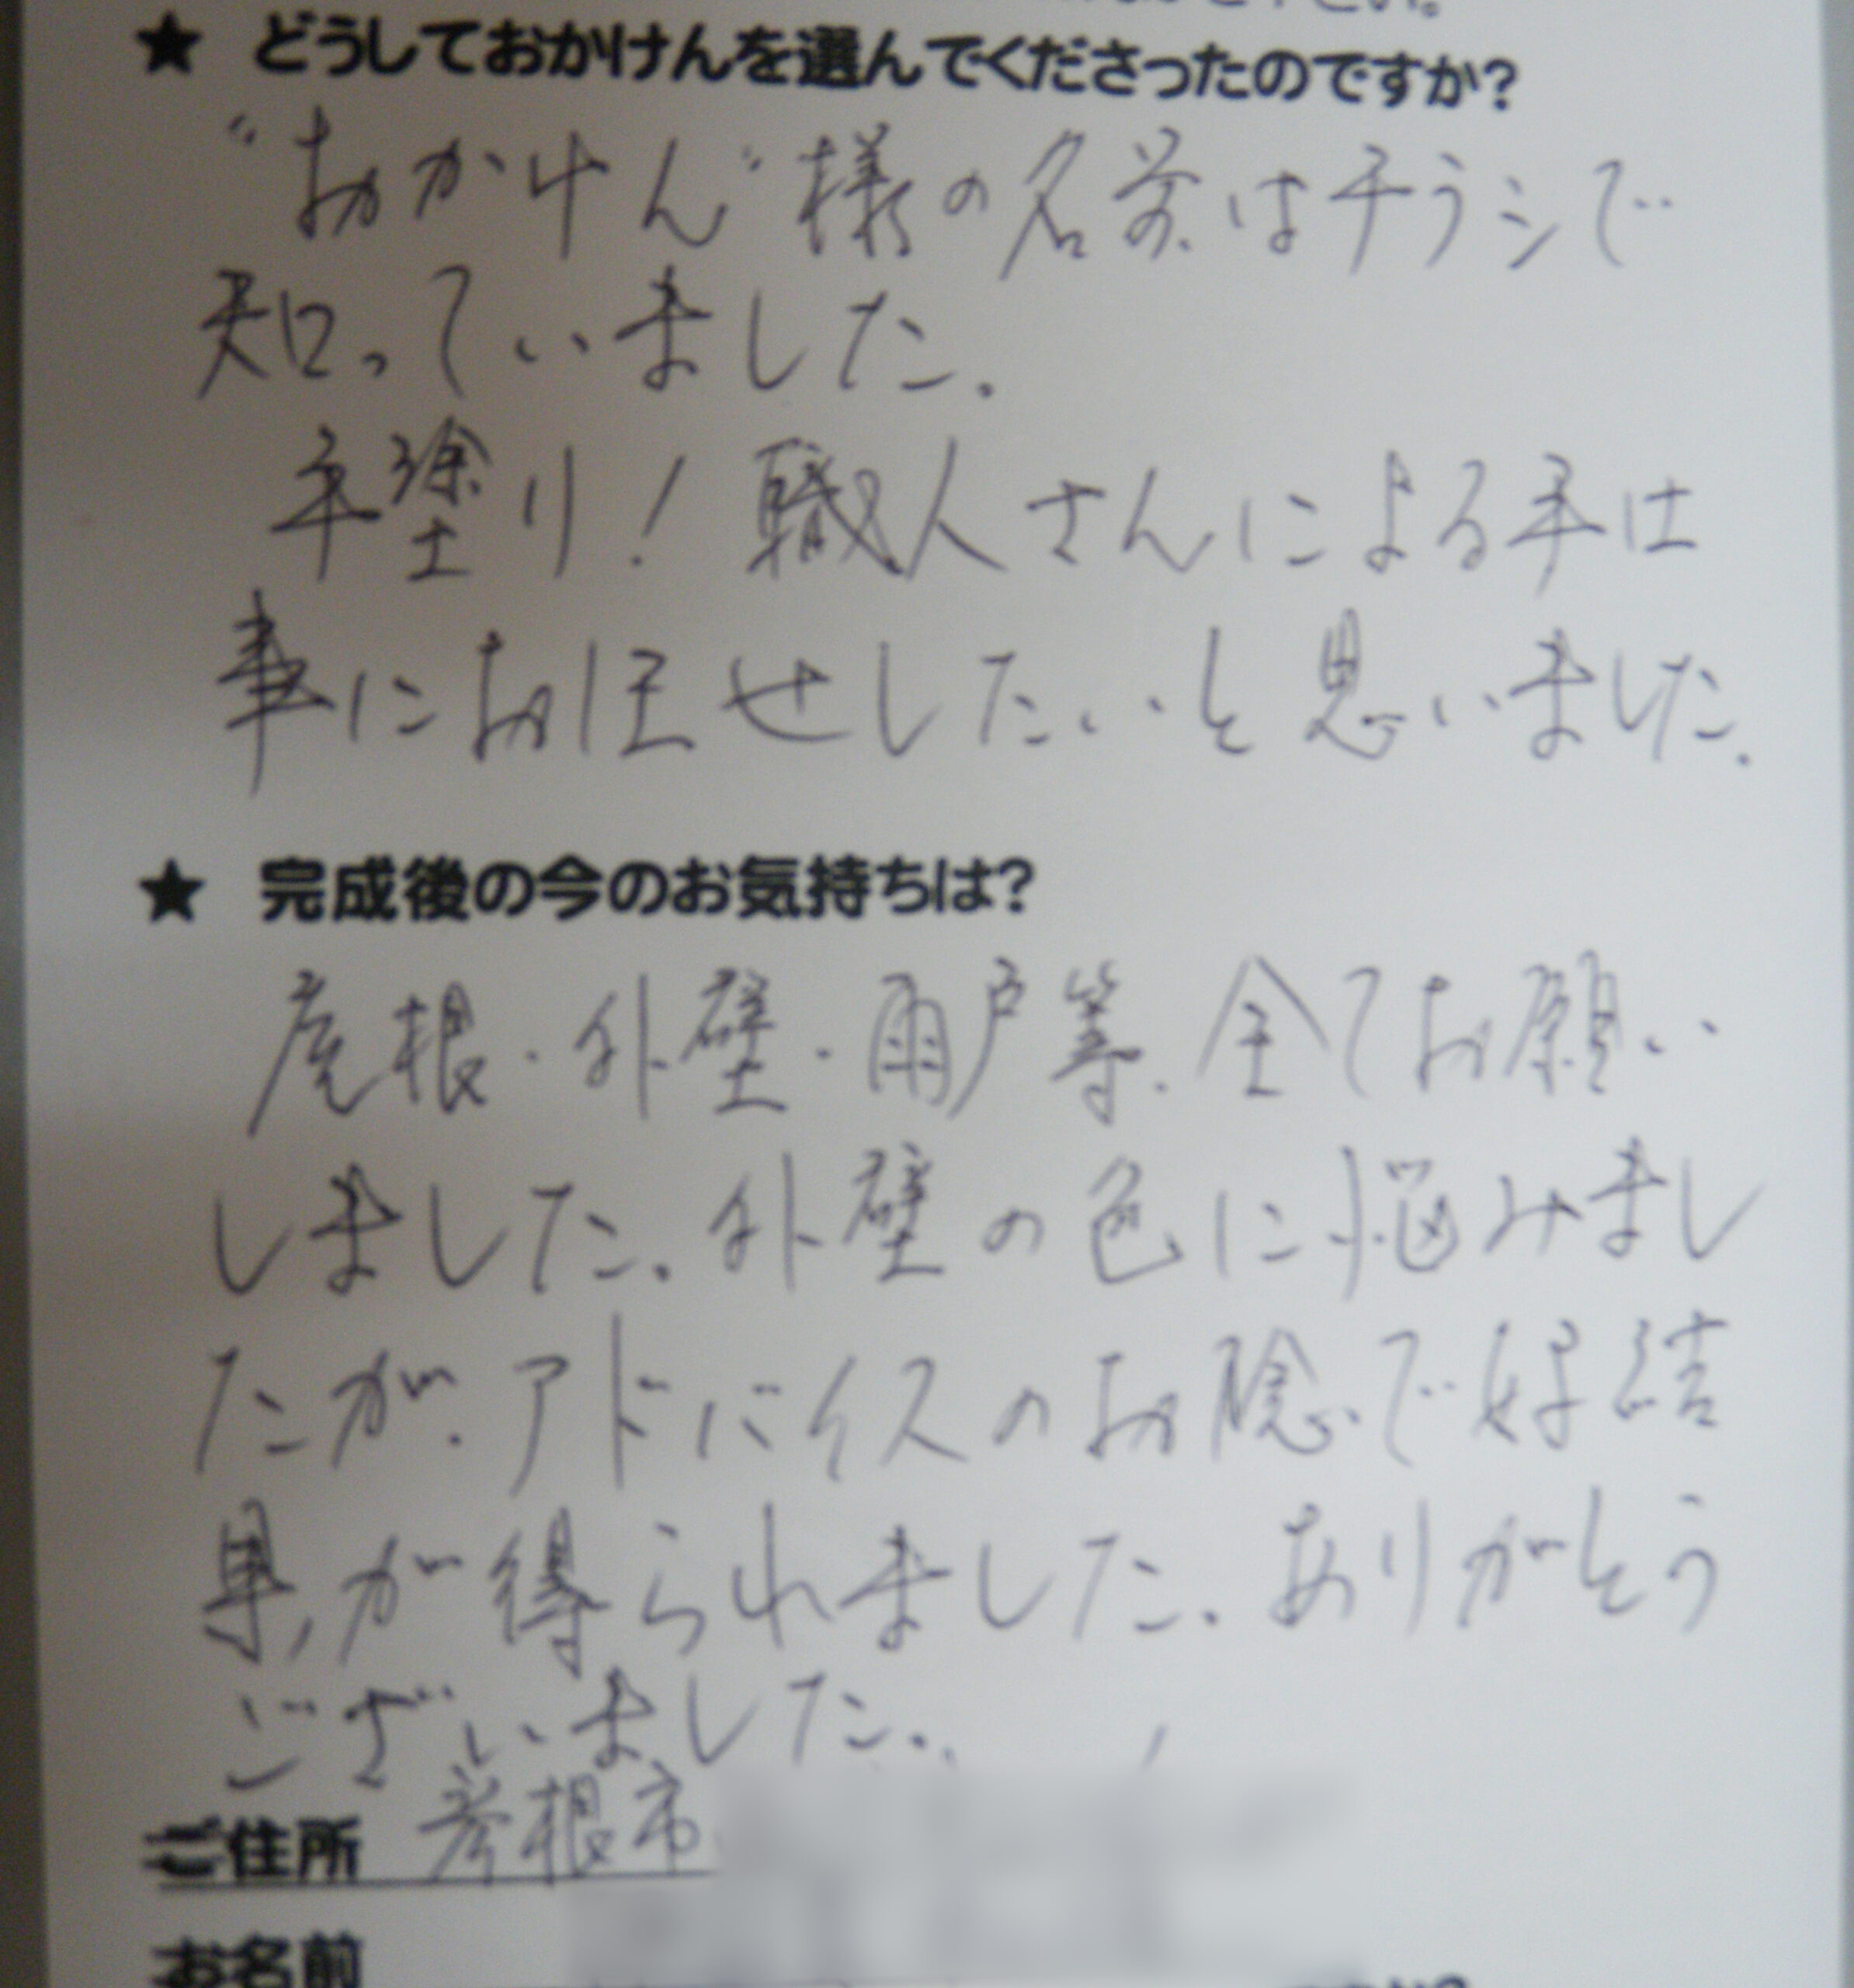 ★ どうしておかけんを選んでくださったのですか?
"おかけん"様の名前はチラシで
知っていました.
手塗り! 職人さんによる手仕
事にお任せしたいと思いました.
★ 完成後の今のお気持ちは?
屋根・外壁・雨戸等.全てお願い
しました.外壁の色に悩みまし
たが.アドバイスのお陰で好結
果が得られました.ありがとう
ございました.
ご住所 彦根市
お名前